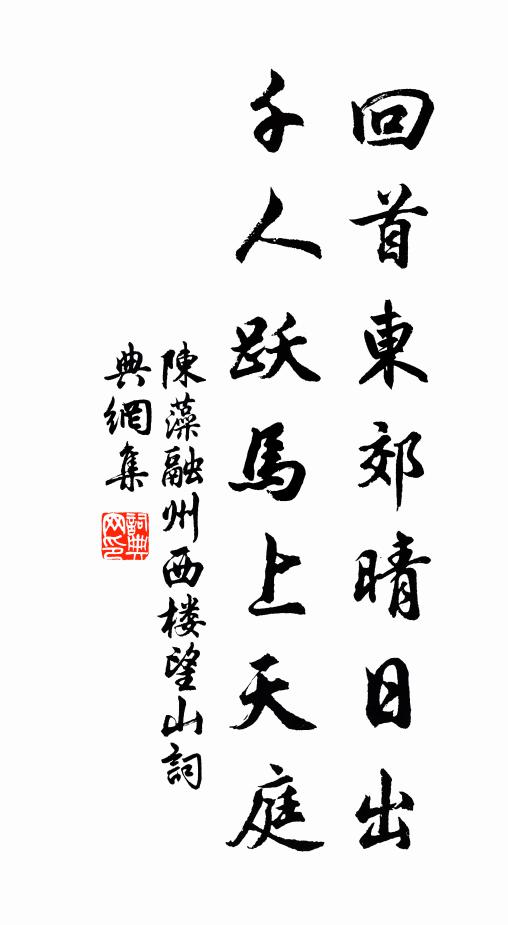 回首東郊晴日出
千人跃馬上天庭
陳藻融州西楼望山詞
典網集
詞典網印